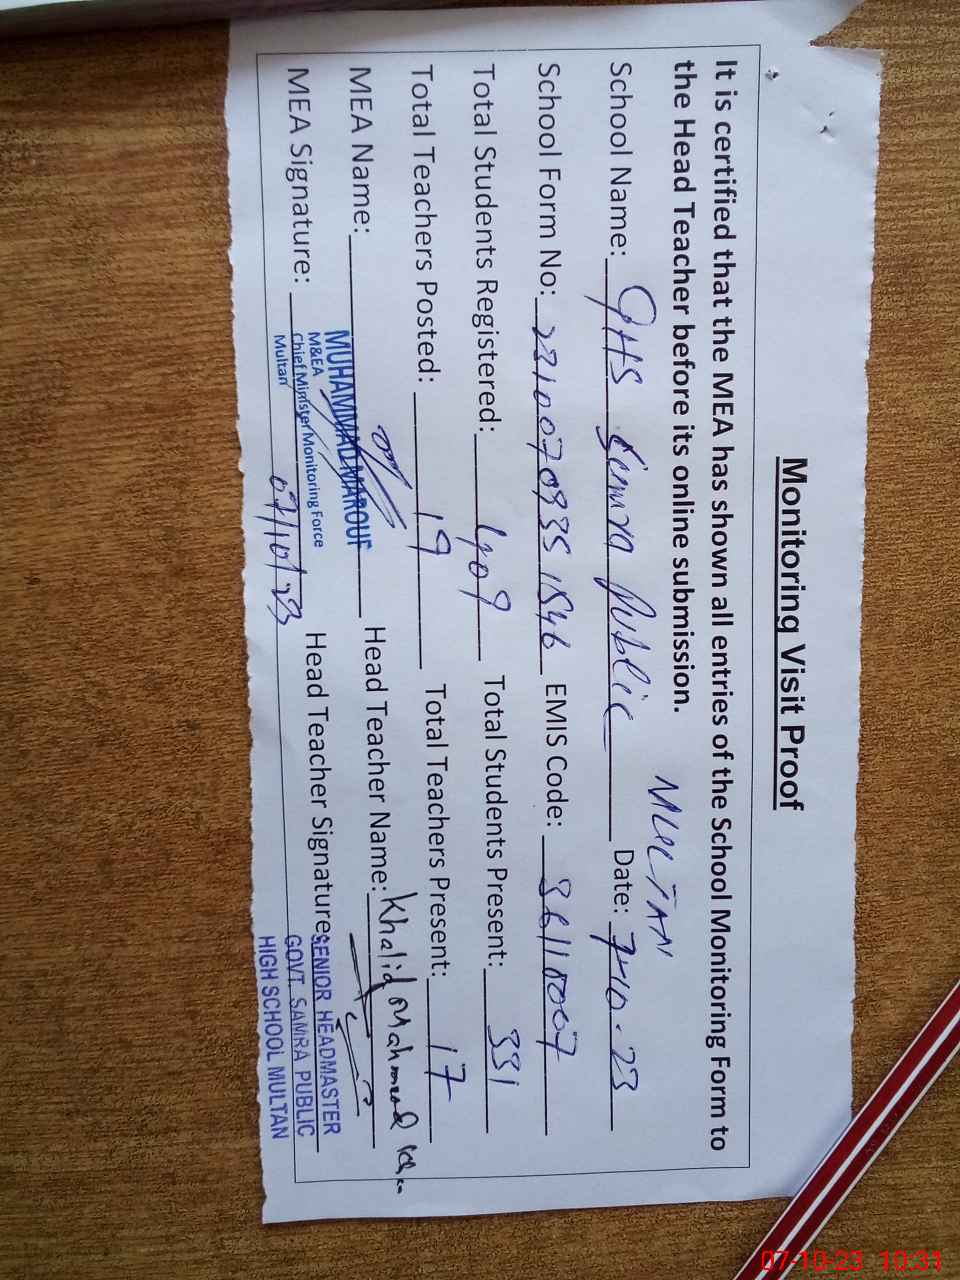 Monitoring Visit Proof
It is certified that the MEA has shown all entries of the School Monitoring Form to
the Head Teacher before its online submission.
MULTAN
School Name: GHS Samra Public Date: 7-10-23
School Form No: 2210070935 1546 EMIS Code: 36110007
Total Students Registered: 409 Total Students Present: 331
Total Teachers Posted: 19 Total Teachers Present: 17
MEA Name: MUHAMMAD MAROUF Head Teacher Name: Khalid Mahmood
M&EA
Chief Minister Monitoring Force
Multan
MEA Signature: 07/10/23 Head Teacher Signature:
SENIOR HEADMASTER
GOVT. SAMRA PUBLIC
HIGH SCHOOL MULTAN
07-10-23 10:31